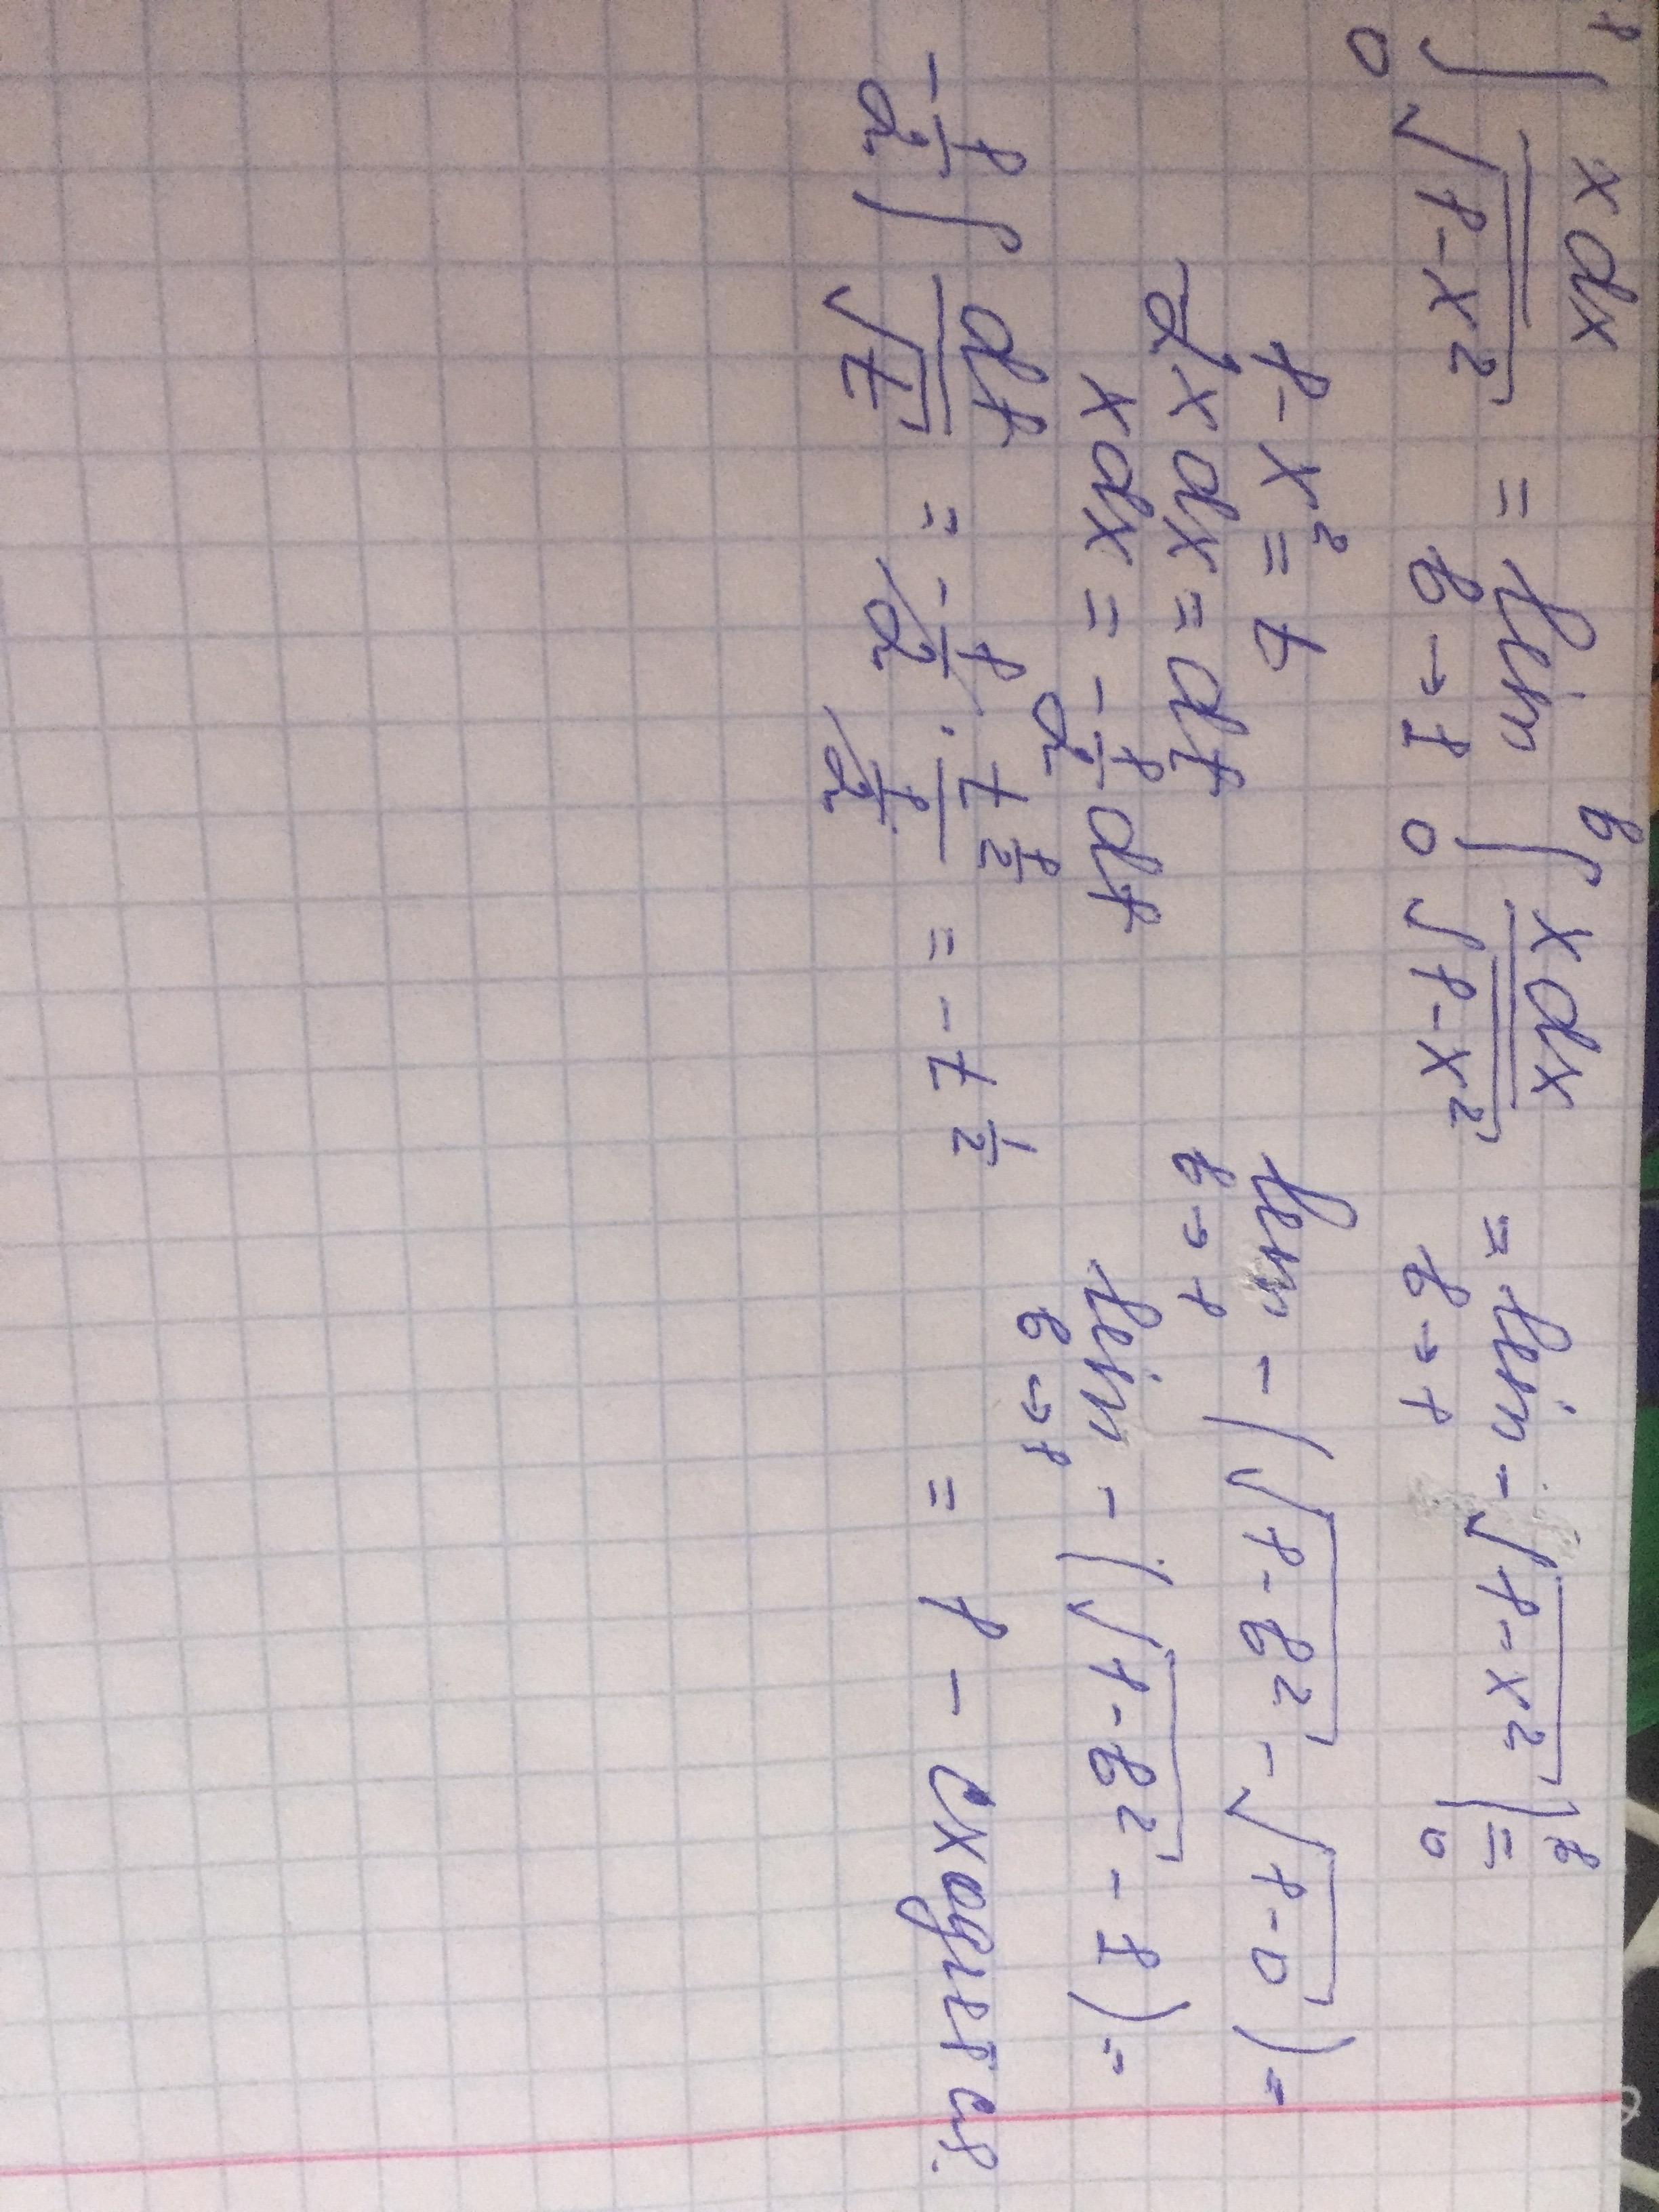 ∫₀¹ x dx / √(1-x²) = lim_{в→1} ∫₀ᵇ x dx / √(1-x²) = lim_{в→1} -√(1-x²) |₀ᵇ =
1-x² = t
lim_{в→1} -(√(1-в²) - √(1-0)) =
2x dx = dt
x dx = -1/2 dt
lim_{в→1} -(√(1-в²) - 1) =
-1/2 ∫ dt/√t = -1/2 · t^(1/2) / (1/2) = -t^(1/2)
= 1 - сходится.